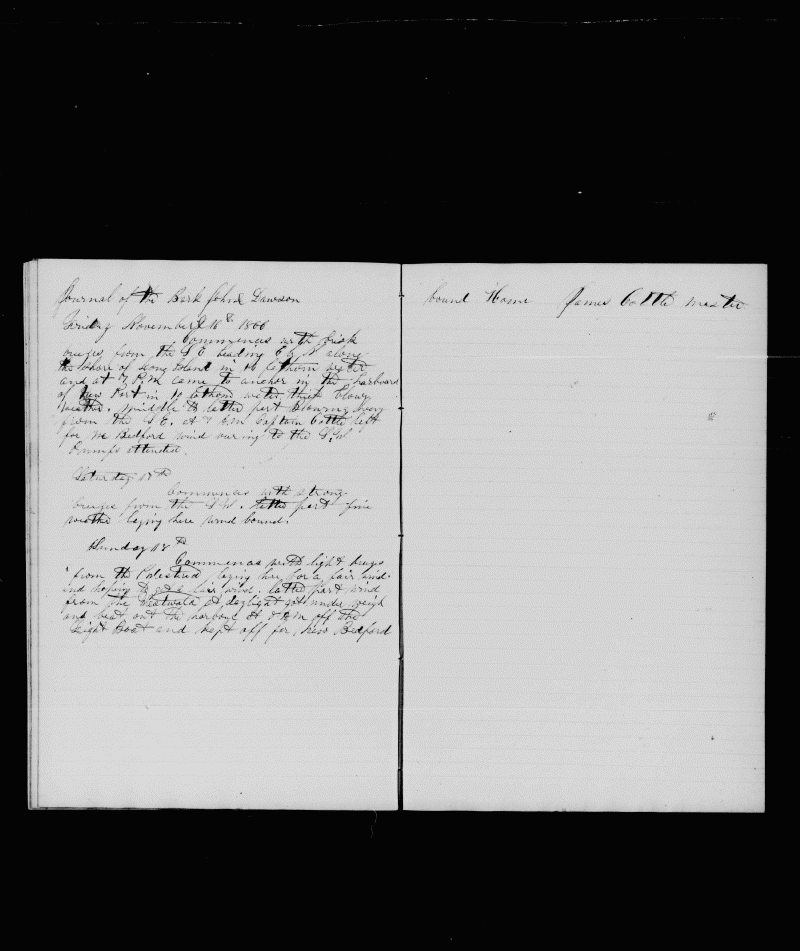 Journal of the Bark John Dawson
bound Home James Cottle master
Friday November 16th 1866
Commences with brisk
breezes from the S E heading E by N along
the shore of Long Island in 14 fathom water
and at 7 P.M came to anchor in the harboard
of New Port in 10 fathom water thick Clowy
weather. Middle & latter part blowing heavy
from the S.E. at 7 A.M Captain Cottle left
for New Bedford wind to the S.W
Pumps attended.
Saturday 17th
Commences with strong
breezes from the S W. latter part fine
weather laying here wind bound.
Sunday 18th
Commences with light breezes
from the laying here for a fair wind
and hoping to get a fair wind. latter part wind
from the Westward At daylight got under weigh
and beat out the harbour At 8 AM off the
Light Boat and kept off for New Bedford